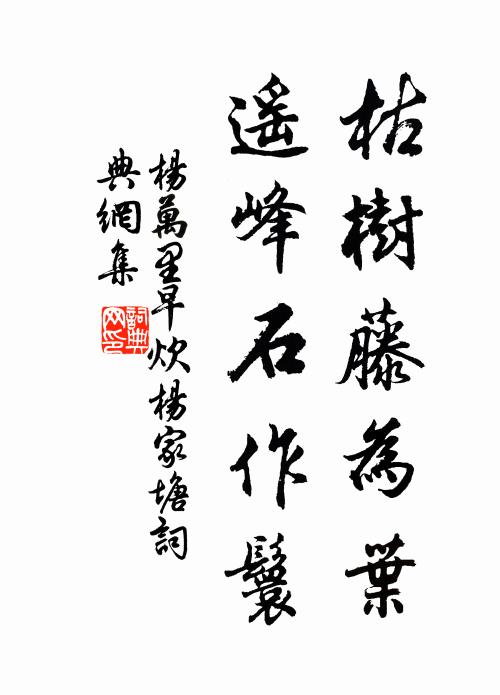 枯樹藤為葉
遥峰石作鬟
楊萬里早炊楊家塘詞
典網集
詞典
网印